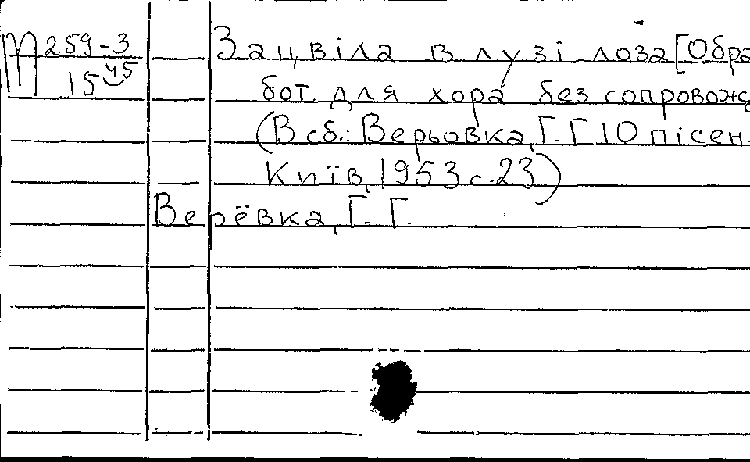 М 259-3 Зацвіла в лузі лоза [Обра
15 45 бот. для хора без сопровожд
(В сб.: Верьовка, Г.Г. 10 пісен.
Київ, 1953 с. 23)
Верёвка, Г. Г.